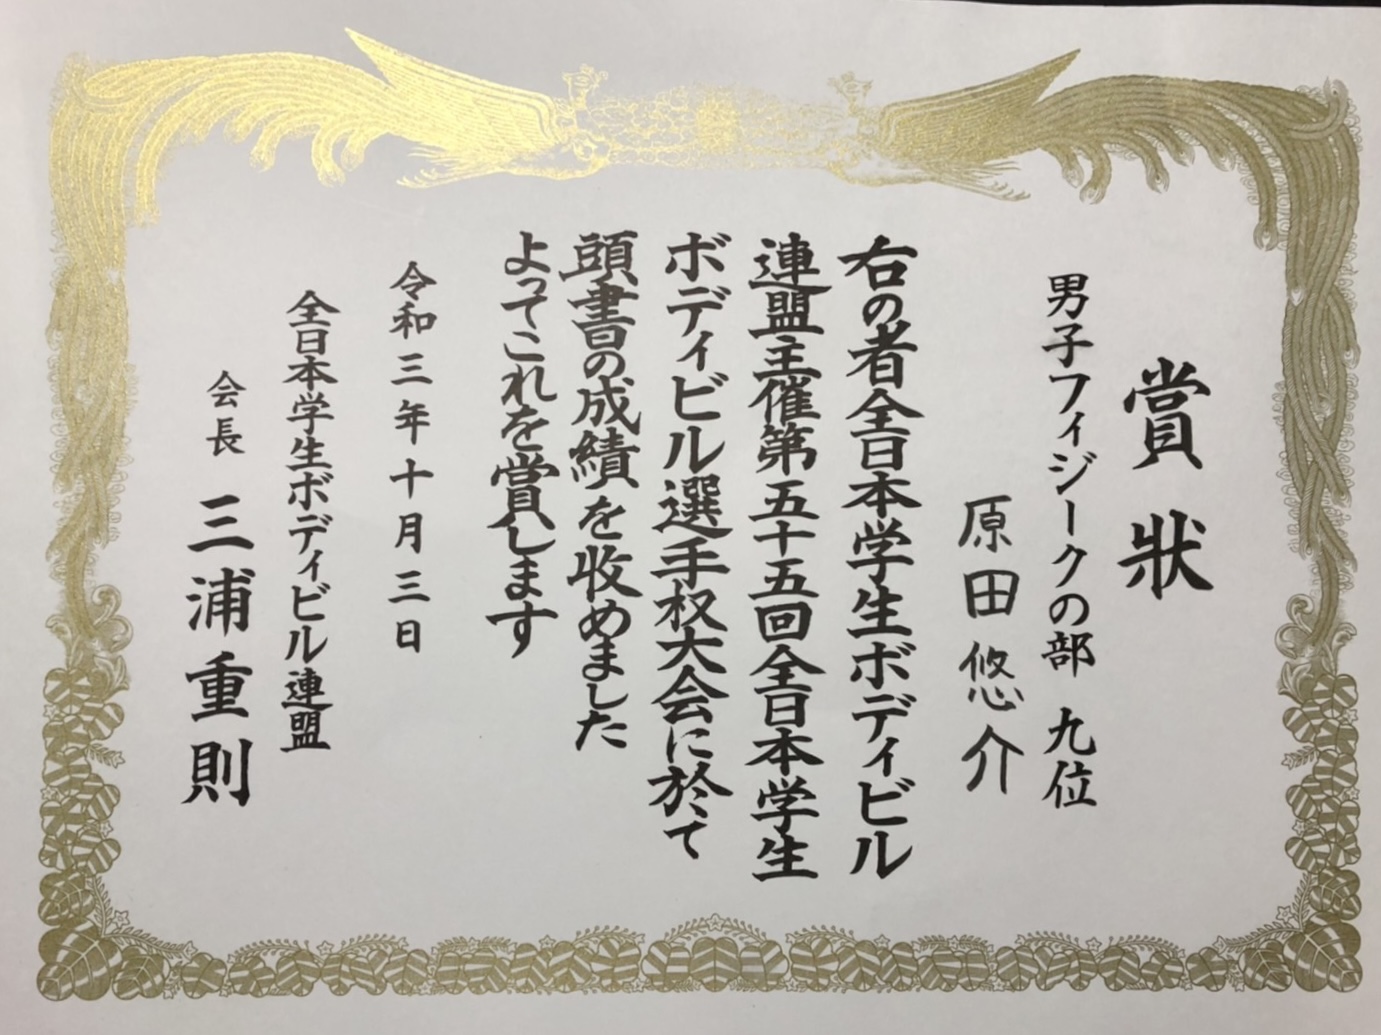 賞状
男子フィジークの部 九位
原田悠介
右の者全日本学生ボディビル
連盟主催第五十五回全日本学生
ボディビル選手权大会に於て
頭書の成績を收めました
よってこれを賞します
令和三年十月三日
全日本学生ボディビル連盟
会長 三浦重則